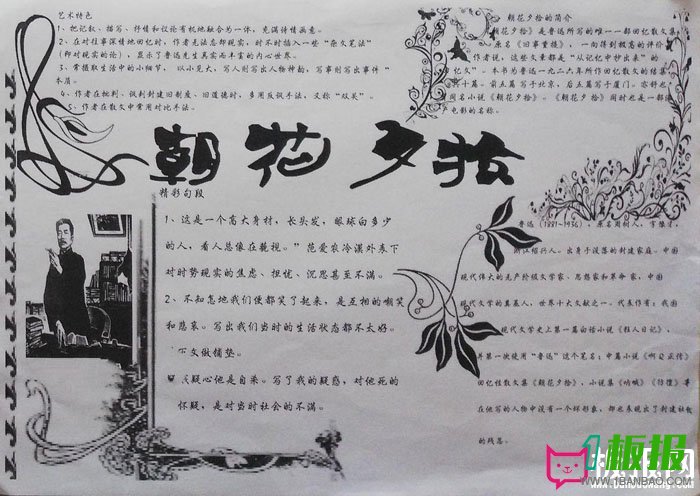 艺术特色
1、把记叙、描写、抒情和议论有机地融合为一体，充满诗情画意。
2、在对往事深情地回忆时，作者无法忘却现实，时不时插入一些“杂文笔法”
(即对现实的论)，显示了鲁迅先生真实而丰富的内心世界。
3、常摄取生活中的小细节， 以小见大，写人则写出人物神韵，写事则写出事件
本质。
4、作者在批判、讽刺封建旧制度、旧道德时，多用反讽手法，又称“双关”。
5、作者在散文中常用对比手法。
朝花夕拾的简介
《朝花夕拾》是鲁迅所写的唯一一部回忆散文集
原名《旧事重提》，一向得到极高的评价
作者说，这些文章都是“从记忆中抄出来”的
忆文”。本书为鲁迅一九二六年所作回忆散文的结集
共十篇。前五篇写于北京，后五篇写于厦门。亦舒也
同名小说《朝花夕拾》。《朝花夕拾》同时也是一部
电影的名称。
朝花夕拾
精彩句段
1、这是一个高大身材，长头发，眼球白多少
的人，看人总像在藐视。” 范爱农冷漠外表下
对时势现实的焦虑、担忧、沉思甚至不满。
2、不知怎地我们便都笑了起来，是互相的嘲笑
和悲哀。写出我们当时的生活状态都不太好。
下文做铺垫。
疑心他是自杀。写了我的疑惑，对他死的
怀疑，是对当时社会的不满。
鲁迅(1881~1936)，原名周树人，字豫才，
浙江绍兴人。出身于没落的封建家庭。中国
现代伟大的无产阶级文学家、思想家和革命家，中国
现代文学的奠基人，世界十大文豪之一。代表作有：我国
现代文学史上第一篇白话小说《狂人日记》，
并第一次使用“鲁迅”这个笔名；中篇小说《阿Q正传》
回忆性散文集《朝花夕拾》，小说集《呐喊》《彷徨》等
在他写的人物中没有一个好形象，都在表现出了封建社会
的残忍。
1板报
WWW.1BANBAO.COM